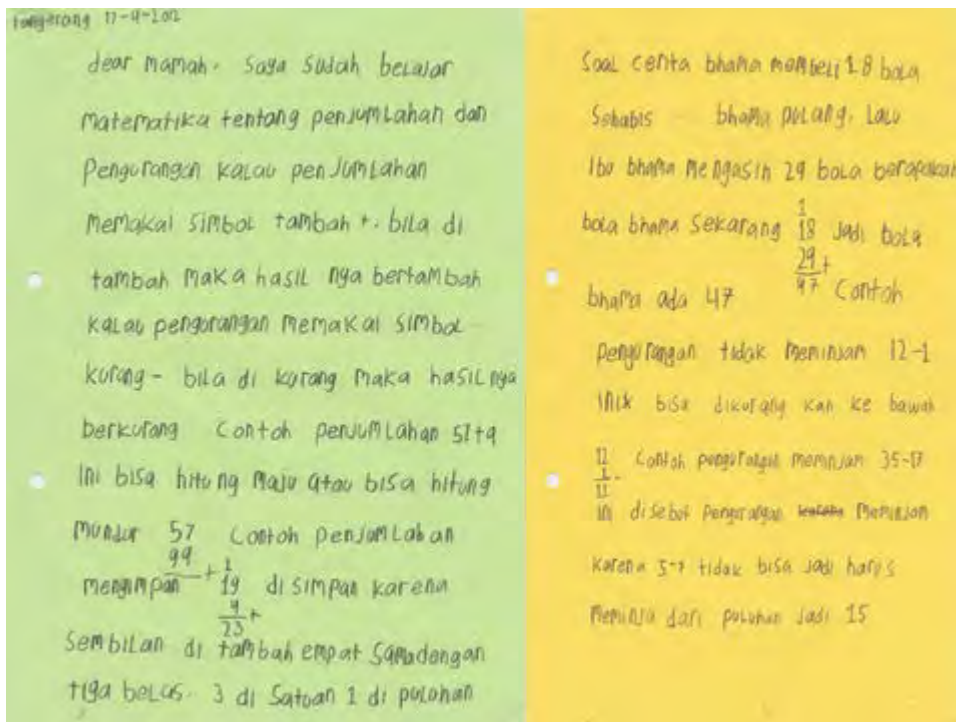 tangerang 17-4-2012
dear mamah. Saya sudah belajar
matematika tentang penjumlahan dan
Pengurangan kalau penjumlahan
memakai simbol tambah +. bila di
tambah maka hasil nya bertambah
kalau pengurangan memakai simbol
kurang - bila di kurang maka hasil nya
berkurang Contoh penjumlahan
ini bisa hitung maju atau bisa hitung
mundur 57 Contoh penjumlahan
mengimpan + 1 19 di simpan karena
4 +
23
Sembilan di tambah empat Samadengan
tiga belas. 3 di Satuan 1 di puluhan
Soal cerita bhama membeli 18 bola
Sehabis bhama pulang. Lalu
Ibu bhama mengasih 29 bola berapakah
bola bhama Sekarang 1 18 Jadi bola
29 +
bhama ada 47 47 Contoh
pengurangan tidak meminjam 12-1
bisa dikurang kan ke bawah
12 Contoh pengurangan meminjam 35-17
1 -
11
ini disebut pengurangan meminjam
karena 5-7 tidak bisa jadi harus
dari puluhan Jadi 15